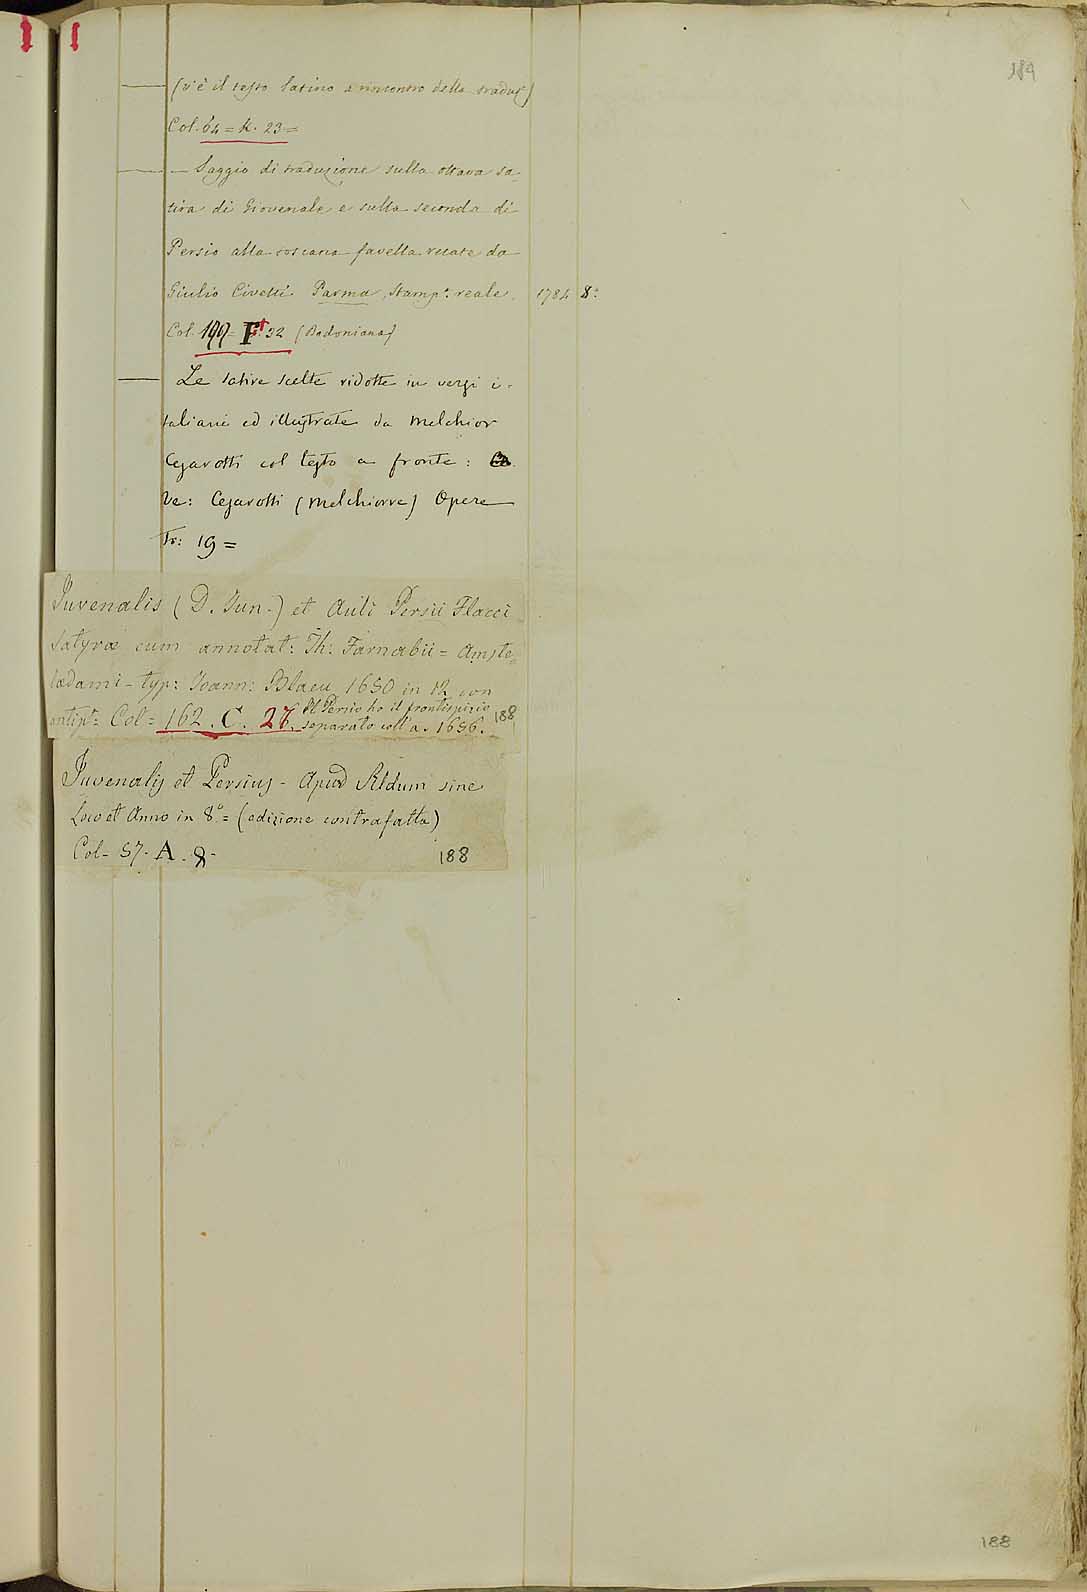 189
— (v'è il testo latino a rincontro della traduz.)
Col. 64 = K. 23 =
— — Saggio di traduzione sulla ottava sa-
tira di Giovenale e sulla seconda di
Persio alla toscana favella recate da
Giulio Civetti. Parma, Stamp.ª reale. 1784 8.º
Col. 199 = F. 32 (Bodoniana)
— Le satire scelte ridotte in versi i-
taliani ed illustrate da Melchior
Cesarotti col testo a fronte:
Ve: Cesarotti (Melchiorre) Opere
To: 19 =
Juvenalis (D. Jun.) et Auli Persii Flacci
Satyræ cum annotat: Th: Farnabii = Amste-
lædami - typ: Joann: Blaeu 1650 in 12 con
antipª = Col = 162. C. 27. Il Persio ha il frontispizio
separato coll'a. 1656. 188
Juvenalis et Persius - Apud Aldum sine
Loco et Anno in 8.º = (edizione contrafatta)
Col - 57. A. 8. 188
188